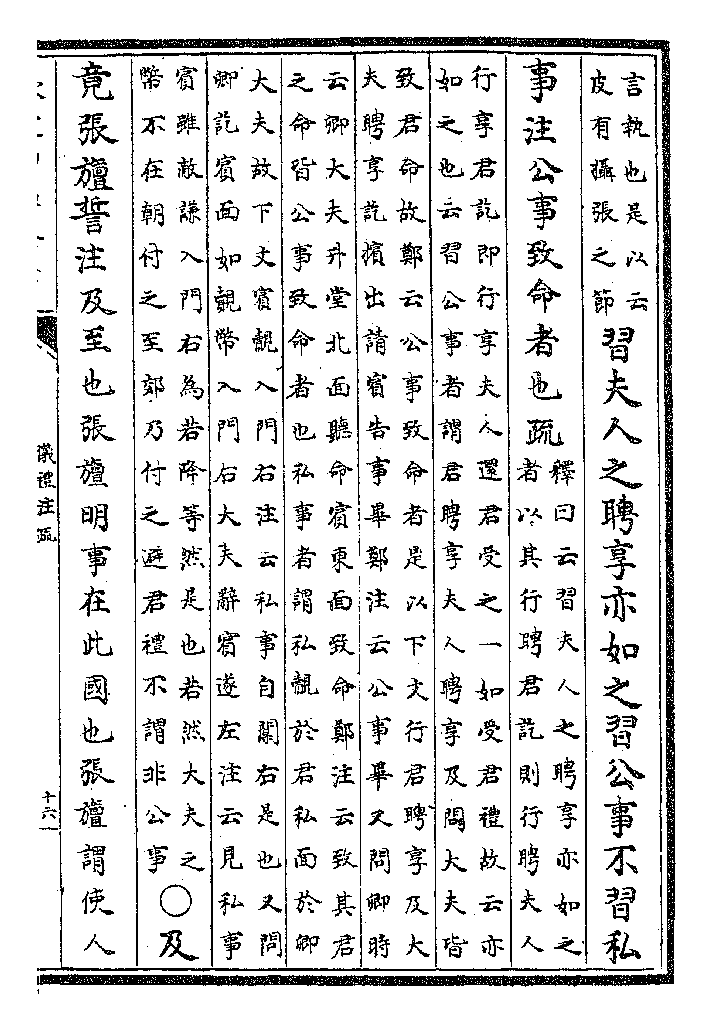 言執也是以云
皮有攝張之節
習夫人之聘享亦如之習公事不習私
事注公事致命者也疏
釋曰云習夫人之聘享亦如之
者以其行聘君訖則行聘夫人
行享君訖即行享夫人還君受之一如受君禮故云亦
如之也云習公事者謂君聘享夫人聘享及問大夫皆
致君命故鄭云公事致命者是以下文行君聘享及大
夫聘享訖擯出請賓告事畢鄭注云公事畢又問卿時
云卿大夫升堂北面聽命賓東面致命鄭注云致其君
之命皆公事致命者也私事者謂私覿於君私面於卿
大夫故下文賓覿入門右注云私事自闑右是也又問
卿訖賓面如覿幣入門右大夫辭賓遂左注云見私事
賓雖敵謙入門右為若降等然是也若然大夫之
幣不在朝付之至郊乃付之避君禮不謂非公事
○及
竟張旜誓注及至也張旜明事在此國也張旜謂使人
儀禮注疏
十六